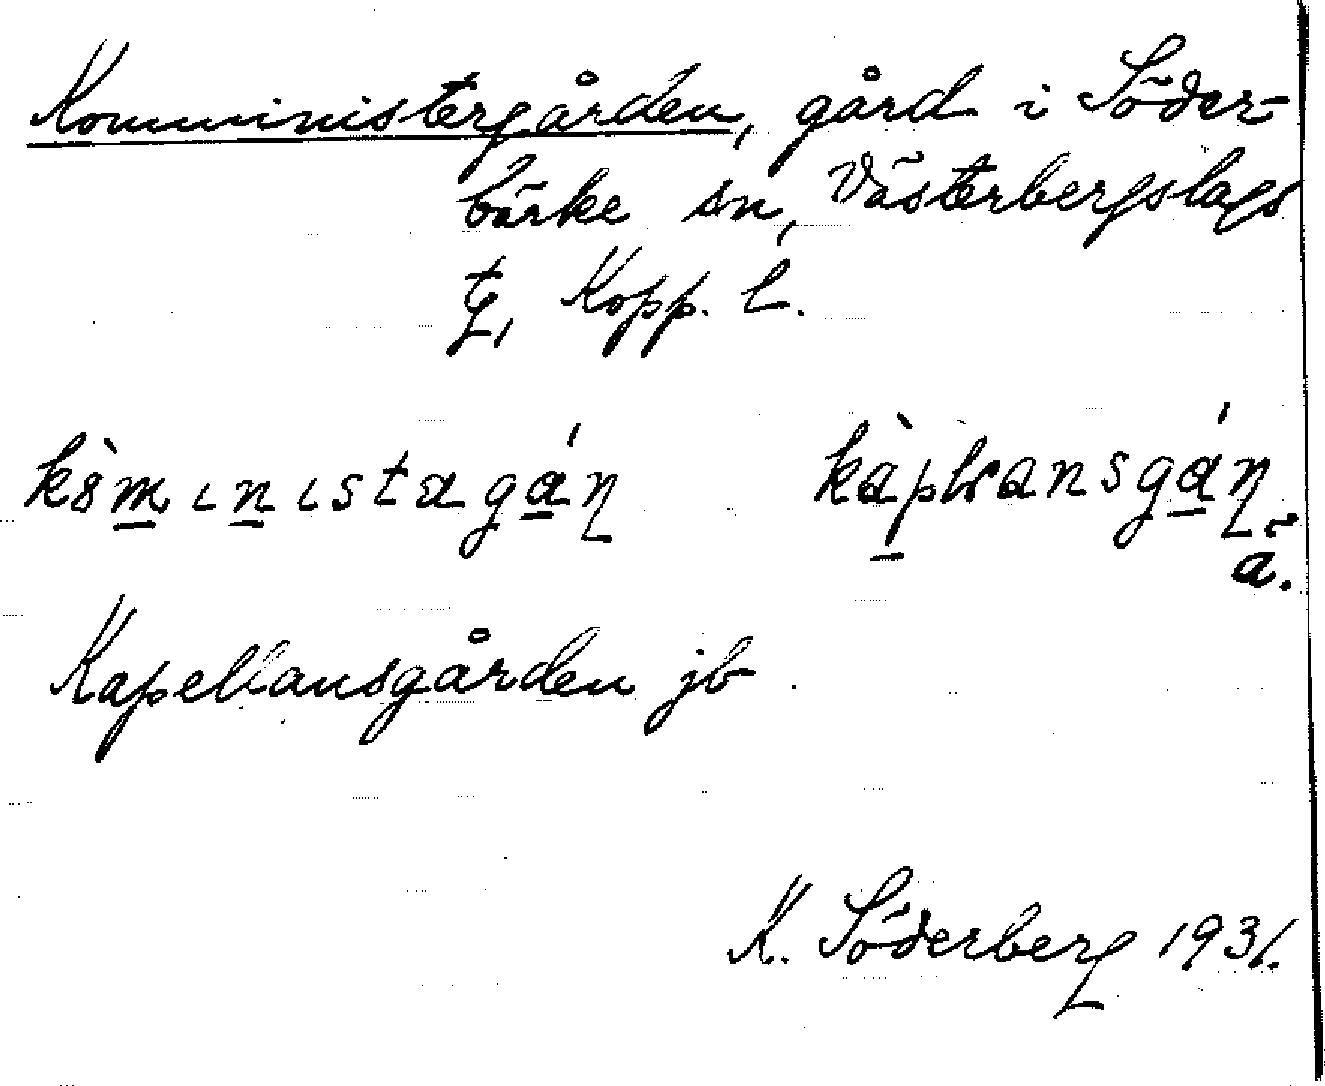 Kommunistergården, gård i Söder-
bärke sn, Västerbergslags
tg, Kopp. l.
kòmɩnɩstagán kàplansgán
ä.
Kapellansgården jb
K. Söderberg 1931.